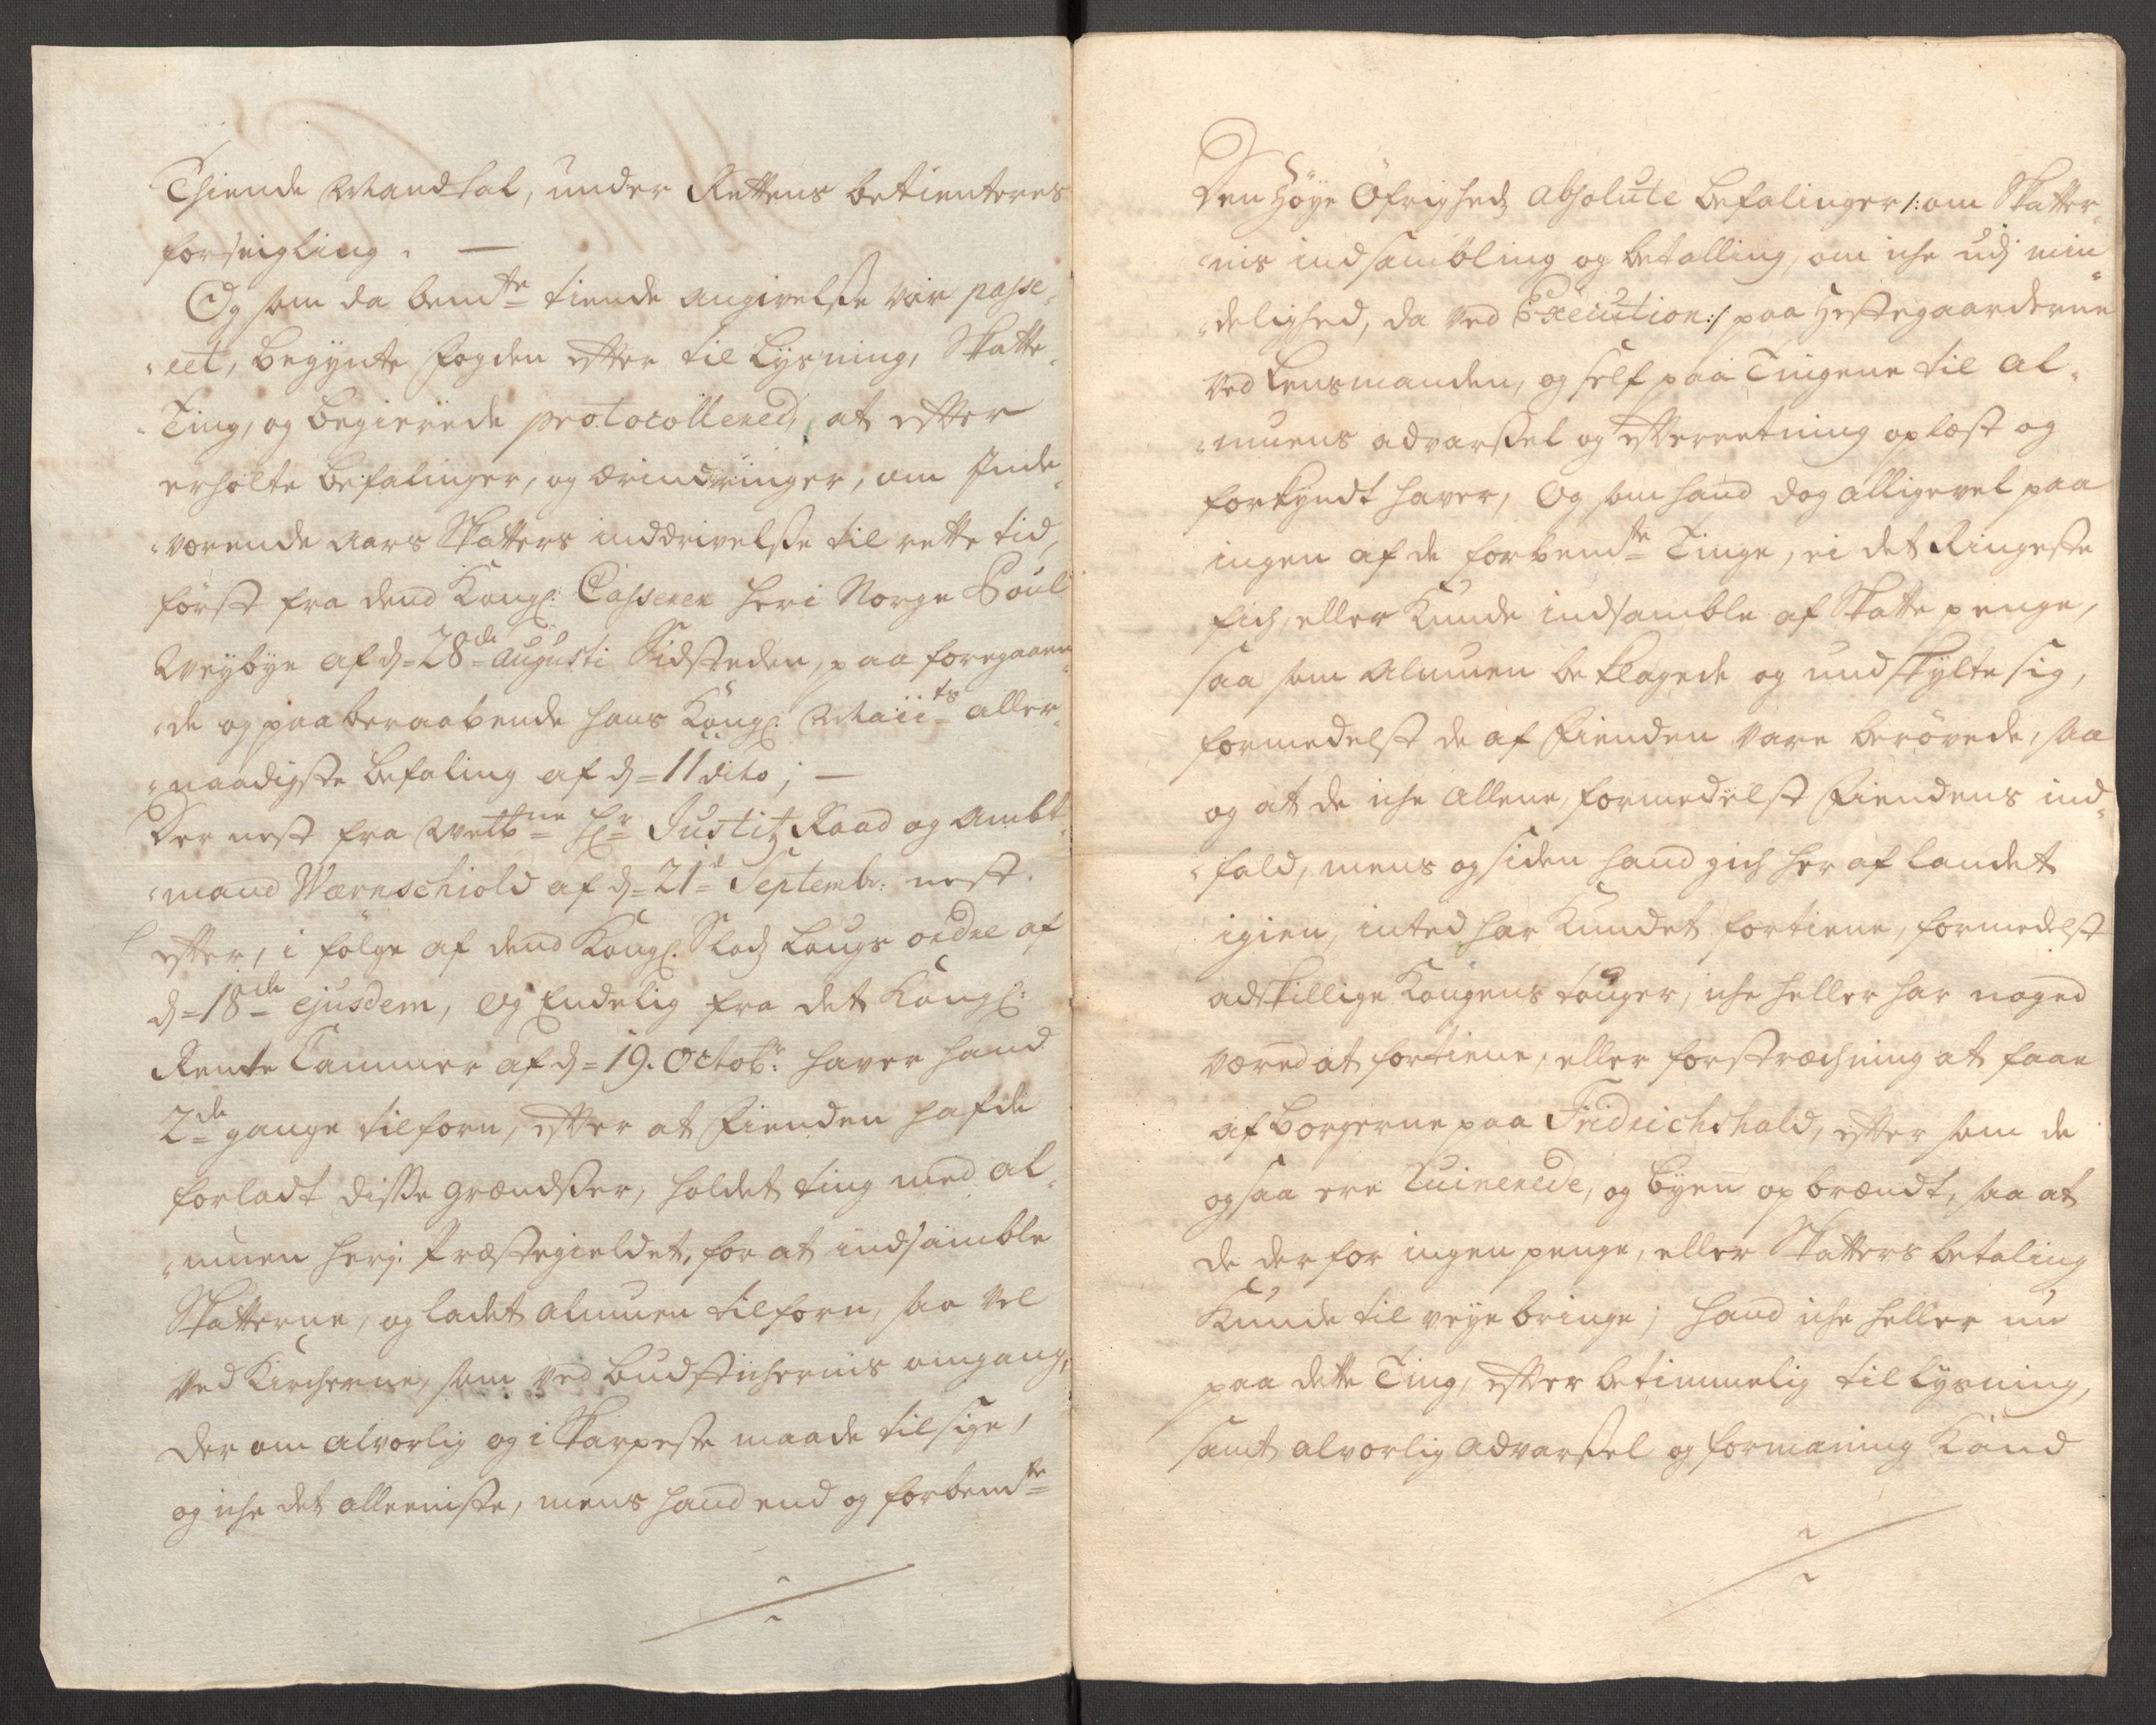 Thiende Mandtal, under Rettens betienteres
forseigling. —
Og som da bemte tiende angivelsse var passe-
ret, begynte Fogden effter tillysning, Skatte-
Ting, og begierede protocollered, at effter
erholte befalinger, og ærindringer, om Inde-
værende Aars Skatters inddrivelsse til rette tid,
først fra dend Kongl: Casserer her i Norge Poul
Weybye af d= 28de Augusti Sidstleden, paa foregaaen-
de og paaberaabende hans Kongl: Maiits aller-
naadigste befaling af d= 11 dito; —
Der nest fra Welbne Hr Justitz Raad og Ambt-
mand Wærnschiold af d= 21de Septembr: nest-
effter, i følge af dend Kongl: Slods Laugs ordre af
d= 18de ejusdem, og Endelig fra det Kongl:
Rente Cammer af d= 19. Octobr: haver hand
2de gange tilforn, effter at Fienden hafde
forladt disse grændsser, holdet ting med al-
muen herj Præstegieldet, for at indsamble
Skatterne, og ladet almuen tilforn, saa vel
ved Kircherne, som ved budstichernis omgang,
der om alvorlig og i Skarpeste maade tilsige,
og iche det alleeniste, mens hand end og forbemte
Den Høye Øfrigheds absolute befalinger /: om Skatter-
nis indsambling og betalling, om iche udj min-
delighed, da ved Execution :/ paa Hestegaarderne
ved Lensmanden, og self paa Tingene til al-
muens advarssel og effterretning oplæst og
forkyndt haver, Og som hand dog alligevel paa
ingen af de forbemte Tinge, ei det Ringeste
fich, eller Kunde indsamble af Skatte penge,
saa som Almuen beklagede og undskylte sig,
formedelst de af Fienden vare berøvede, saa
og at de iche allene, formedelst Fiendens ind-
fald, mens og siden hand gich her af landet
igien, inted har Kundet fortiene, formedelst
adskillige Kongens touger, iche heller har noged
været at fortiene, eller forstræchning at faae
af borgerne paa Fridrichshald, effter som de
ogsaa ere Ruinerede, og byen opbrændt, saa at
de der for ingen penge, eller Skatters betaling
Kunde til veye bringe; hand iche heller nu
paa dette Ting, effter betimmelig tillysning,
samt alvorlig advarssel og formaning Kand